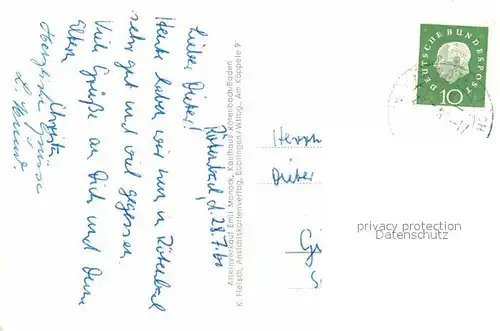 Rötenbach, d. 28.7.60
Lieber Dieter!
Heute haben wir hier in Rötenbach
sehr gut und viel gegessen.
Viele Grüße an Dich und Deine
Eltern
Christa
Herzliche Grüsse
Alleinverkauf Emil Manock, Kaufhaus Rötenbach/Baden
K. Fleisch, Ansichtskartenverlag, Böblingen/Wttbg., Am Käppele 9
DEUTSCHE BUNDESPOST
10
Herrn
Dieter
privacy protection
Datenschutz